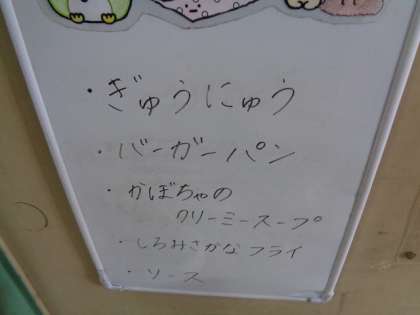 ・ぎゅうにゅう
・バーガーパン
・かぼちゃの
クリーミースープ
・しろみさかなフライ
・ソース